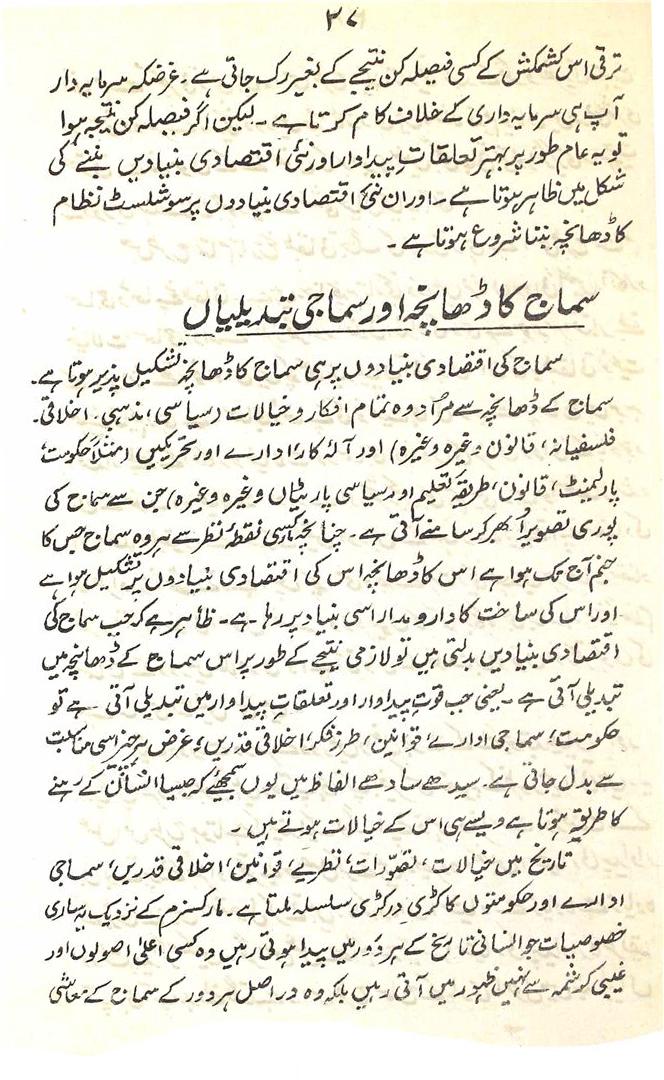 ۳۷
ترقی اس کشمکش کے کسی فیصلہ کن نتیجے کے بغیر رک جاتی ہے۔ غرضکہ سرمایہ دار
آپ ہی سرمایہ داری کے خلاف کام کرتا ہے۔ لیکن اگر فیصلہ کن نتیجہ ہوا
تو یہ عام طور پر بہتر تعلقاتِ پیداوار اور نئی اقتصادی بنیادیں بننے کی
شکل میں ظاہر ہوتا ہے۔ اور ان نئی اقتصادی بنیادوں پر سوشلسٹ نظام
کا ڈھانچہ بننا شروع ہوتا ہے۔
سماج کا ڈھانچہ اور سماجی تبدیلیاں
سماج کی اقتصادی بنیادوں پر ہی سماج کا ڈھانچہ تشکیل پذیر ہوتا ہے۔
سماج کے ڈھانچہ سے مراد وہ تمام افکار و خیالات (سیاسی، مذہبی۔ اخلاقی۔
فلسفیانہ، قانون وغیرہ وغیرہ) اور آلۂ کار، ادارے اور تحریکیں (مثلاً حکومت،
پارلمینٹ، قانون، طریقۂ تعلیم اور سیاسی پارٹیاں وغیرہ وغیرہ) جن سے سماج کی
پوری تصویر اُبھر کر سامنے آتی ہے۔ چنانچہ مارکسی نقطۂ نظر سے ہر وہ سماج جس کا
جنم آج تک ہوا ہے اس کا ڈھانچہ اس کی اقتصادی بنیادوں پر تشکیل ہوا ہے
اور اس کی ساخت کا دارومدار اسی بنیاد پر رہا ہے۔ ظاہر ہے کہ جب سماج کی
اقتصادی بنیادیں بدلتی ہیں تو لازمی نتیجے کے طور پر اس سماج کے ڈھانچہ میں
تبدیلی آتی ہے۔ یعنی جب قوتِ پیداوار اور تعلقاتِ پیداوار میں تبدیلی آتی ہے تو
حکومت، سماجی ادارے، قوانین، طرزِ فکر، اخلاقی قدریں، غرض ہر چیز اسی مناسبت
سے بدل جاتی ہے۔ سیدھے سادھے الفاظ میں یوں سمجھیئے کہ جیسا انسان کے رہنے
کا طریقہ ہوتا ہے ویسے ہی اس کے خیالات ہوتے ہیں۔
تاریخ میں خیالات، تصوّرات، نظریے، قوانین، اخلاقی قدریں، سماجی
ادارے اور حکومتوں کا کڑی در کڑی سلسلہ ملتا ہے۔ مارکسزم کے نزدیک یہ ساری
خصوصیات جو انسانی تاریخ کے ہر دَور میں پیدا ہوتی رہیں وہ کسی اعلیٰ اصولوں اور
غیبی کرشمہ سے نہیں ظہور میں آتی رہیں بلکہ وہ دراصل ہر دور کے سماج کے معاشی